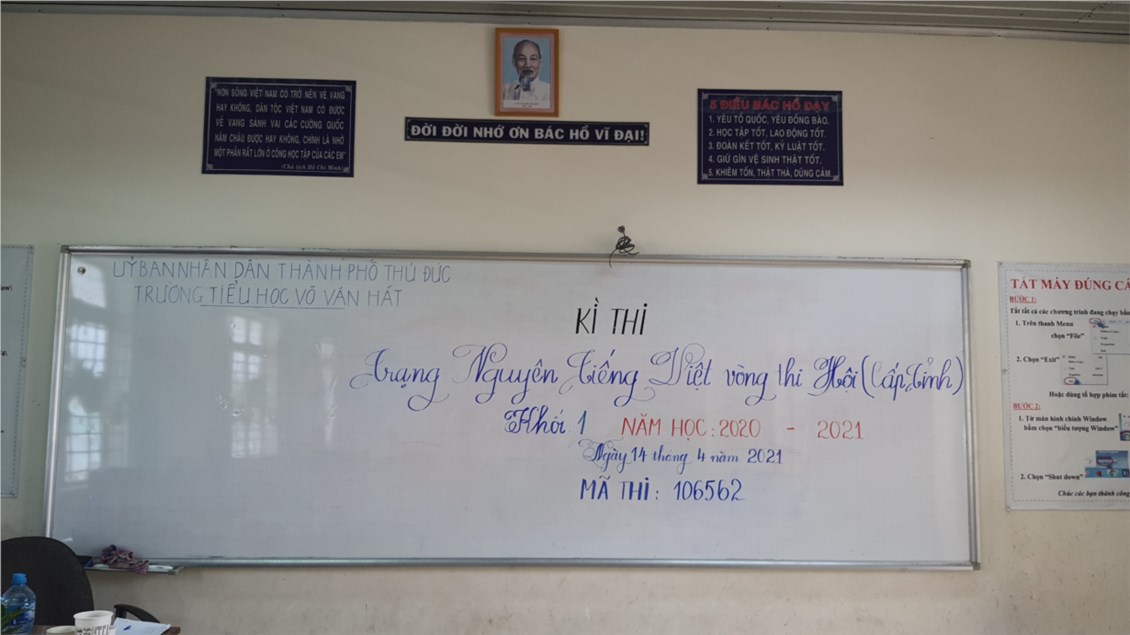 "NON SÔNG VIỆT NAM CÓ TRỞ NÊN VẺ VANG
HAY KHÔNG, DÂN TỘC VIỆT NAM CÓ ĐƯỢC
VẺ VANG SÁNH VAI CÁC CƯỜNG QUỐC
NĂM CHÂU ĐƯỢC HAY KHÔNG, CHÍNH LÀ NHỜ
MỘT PHẦN RẤT LỚN Ở CÔNG HỌC TẬP CỦA CÁC EM"
(Chủ tịch Hồ Chí Minh)
ĐỜI ĐỜI NHỚ ƠN BÁC HỒ VĨ ĐẠI!
5 ĐIỀU BÁC HỒ DẠY
1. YÊU TỔ QUỐC, YÊU ĐỒNG BÀO.
2. HỌC TẬP TỐT, LAO ĐỘNG TỐT.
3. ĐOÀN KẾT TỐT, KỶ LUẬT TỐT.
4. GIỮ GÌN VỆ SINH THẬT TỐT.
5. KHIÊM TỐN, THẬT THÀ, DŨNG CẢM.
UỶ BAN NHÂN DÂN THÀNH PHỐ THỦ ĐỨC
TRƯỜNG TIỂU HỌC VÕ VĂN HÁT
KÌ THI
Trạng Nguyên Tiếng Việt vòng thi Hội (Cấp Tỉnh)
Khối 1 NĂM HỌC : 2020 - 2021
Ngày 14 tháng 4 năm 2021
MÃ THI : 106562
TẮT MÁY ĐÚNG
BƯỚC 1:
Tắt tất cả các chương trình đang chạy
1. Trên thanh Menu
chọn "File"
2. Chọn "Exit"
Hoặc dùng tổ hợp phím tắt:
BƯỚC 2:
1. Từ màn hình chính Window
bấm chọn "biểu tượng Window"
2. Chọn "Shut down"
Chúc các bạn thành công